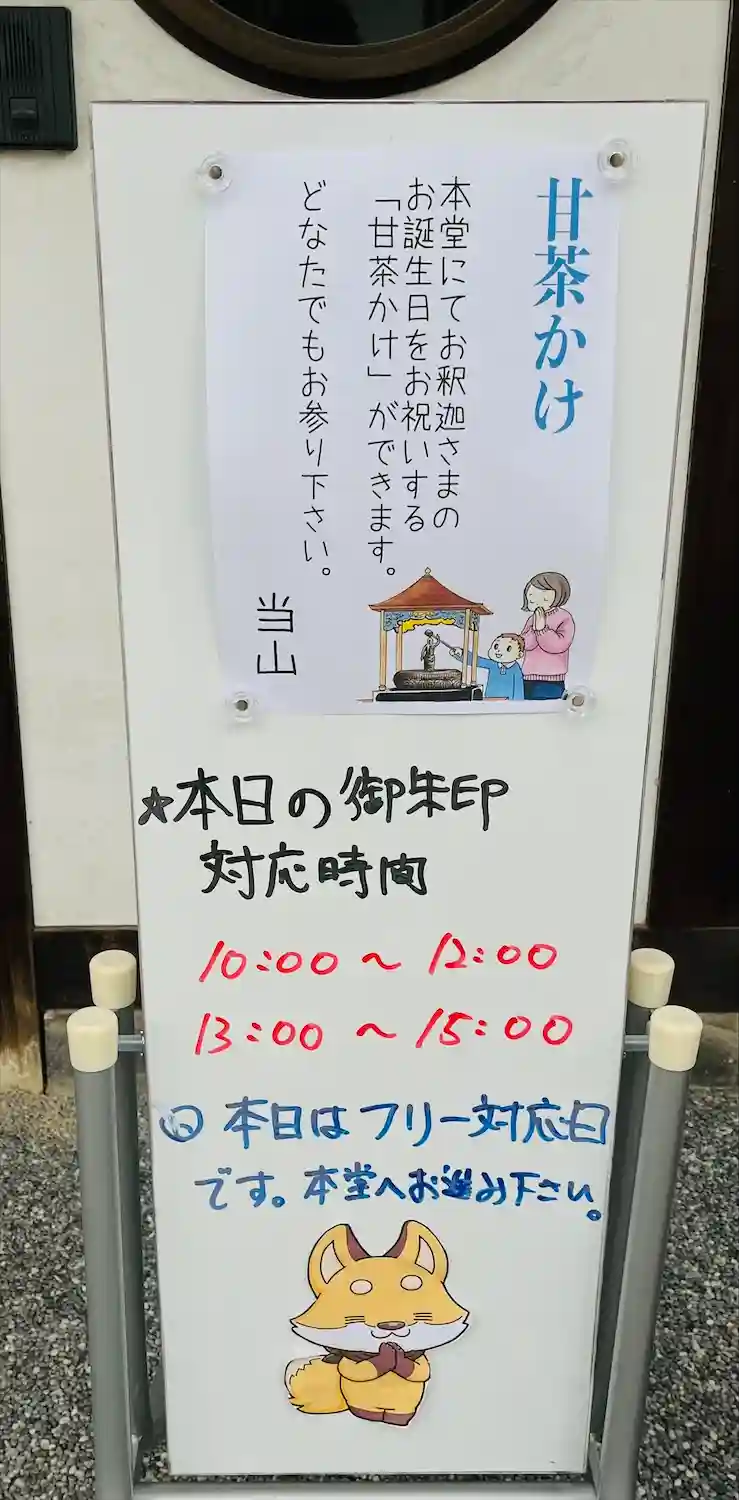 甘茶かけ
本堂にてお釈迦さまの
お誕生日をお祝いする
「甘茶かけ」ができます。
どなたでもお参り下さい。
当山
☆本日の御朱印
対応時間
10:00～12:00
13:00～15:00
◎本日はフリー対応日
です。本堂へお進み下さい。